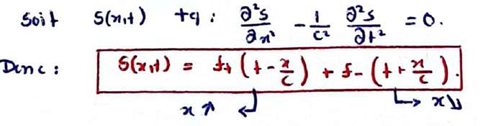 Soit S(x,t) tq : ∂²s/∂x² - 1/c² ∂²s/∂t² = 0.
Donc : S(x,t) = f+ (t - x/c) + f- (t + x/c).
x ↗ x ↘